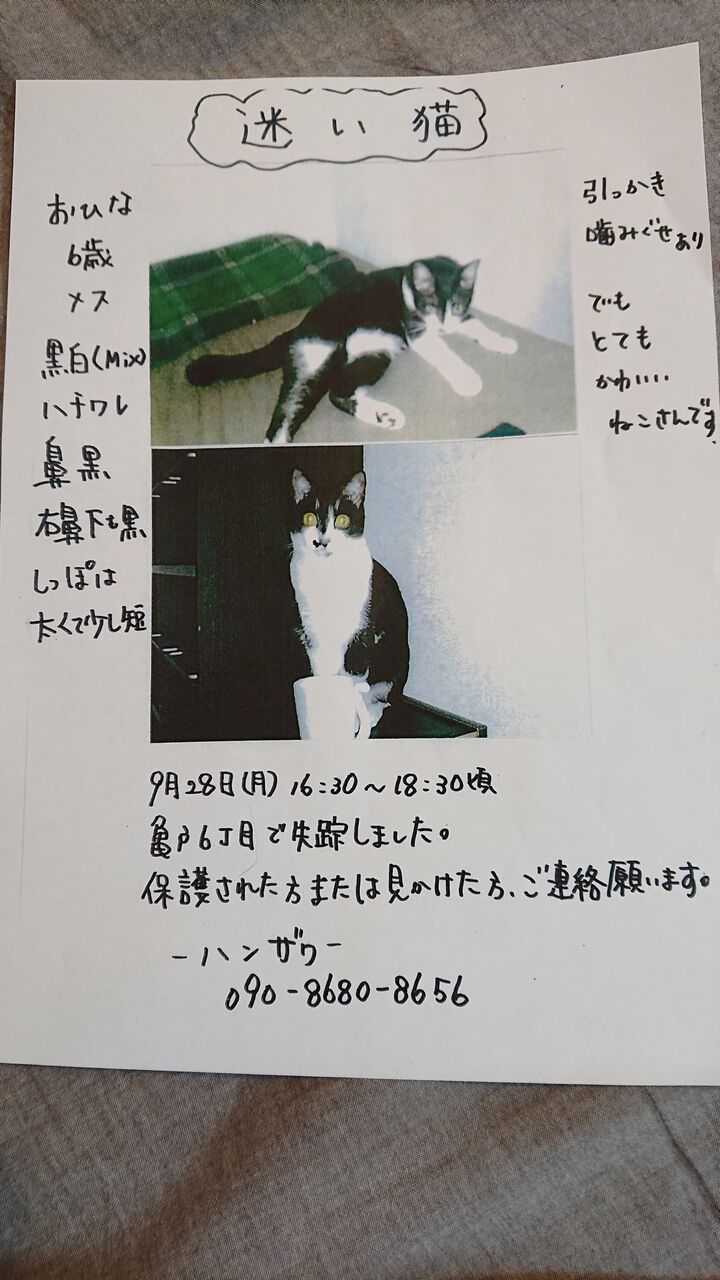 迷い猫
おひな
6歳
メス
黒白(Mix)
ハチワレ
鼻黒
右鼻下も黒
しっぽは
太くて少し短
引っかき
噛みぐせあり
でも
とても
かわいい
ねこさんです
9月28日(月) 16:30〜18:30頃
亀戸6丁目で失踪しました。
保護された方または見かけた方、ご連絡願います。
-ハンザワ-
090-8680-8656